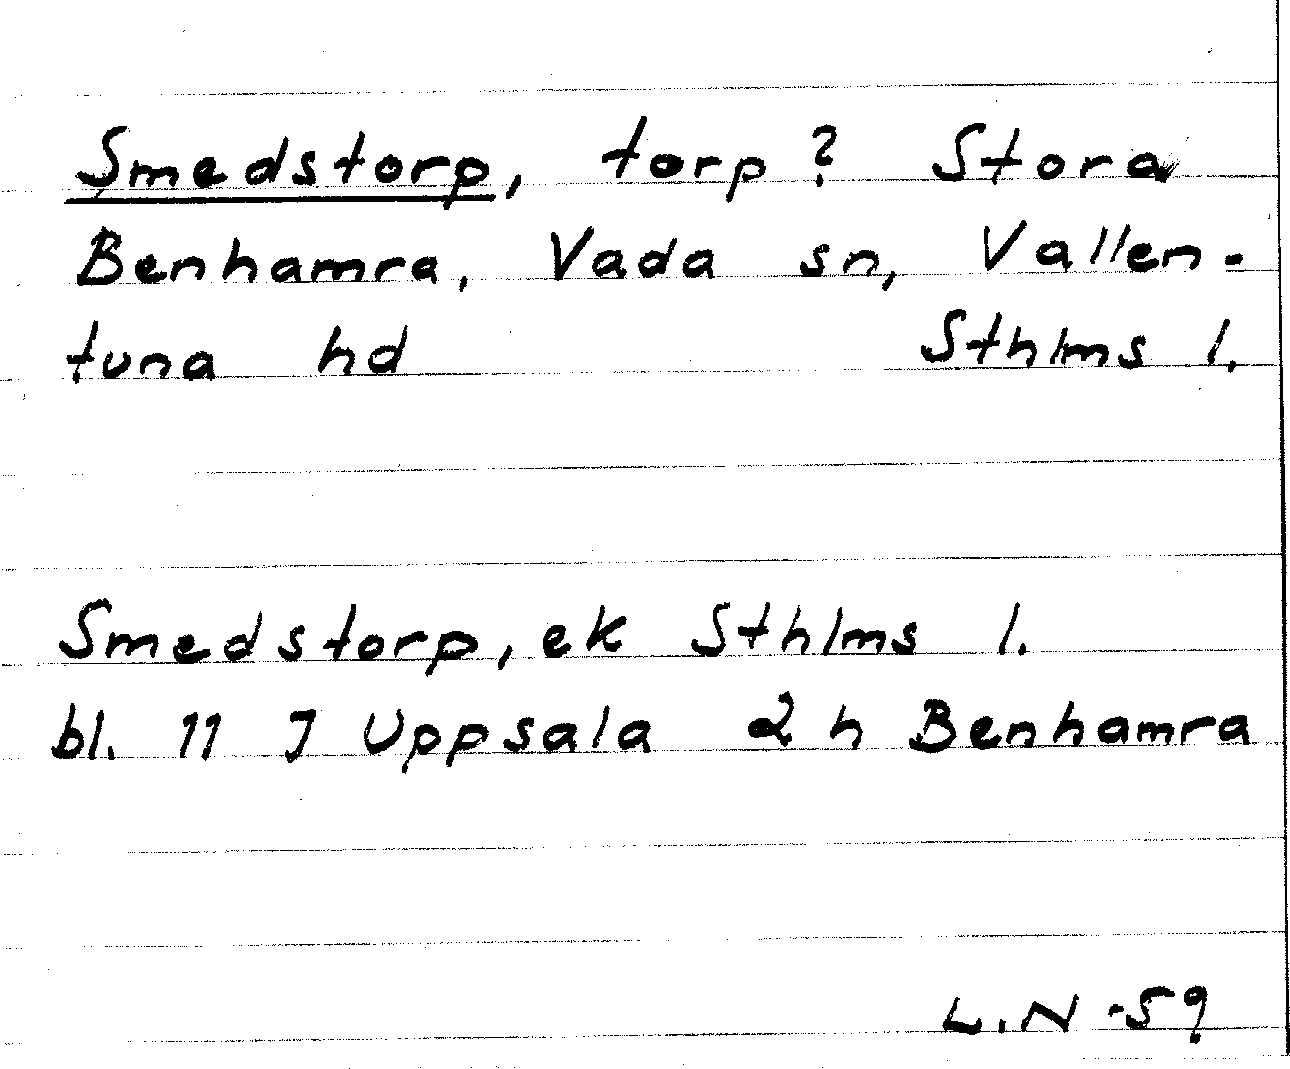 Smedstorp, torp? Stora
Benhamra, Vada sn, Vallen-
tuna hd Sthlms l.
Smedstorp, ek Sthlms l.
bl. 11 J Uppsala 2 h Benhamra
L.N -59